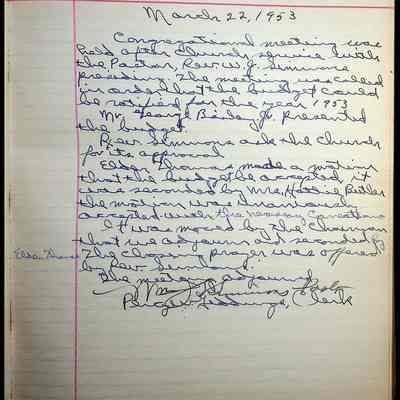 March 22, 1953
Congregational meeting was
held after Church service with
the Pastor Rev. W. J. Simmons
presiding. The meeting was called
in order that the budget could
be ratified for the year 1953
Mr. George Jr. presented
the budget.
Rev. Simmons ask the Church
for its approval
Elder Thomas made a motion
that the budget be accepted, it
was seconded by Mrs. Hattie Butler
the motion was
accepted with the
It was moved by the Chairman
that we adjourn and seconded by
Elder Thomas
The closing prayer was offered
by Rev. Simmons.
The meeting adjourned
Simmons
Clerk